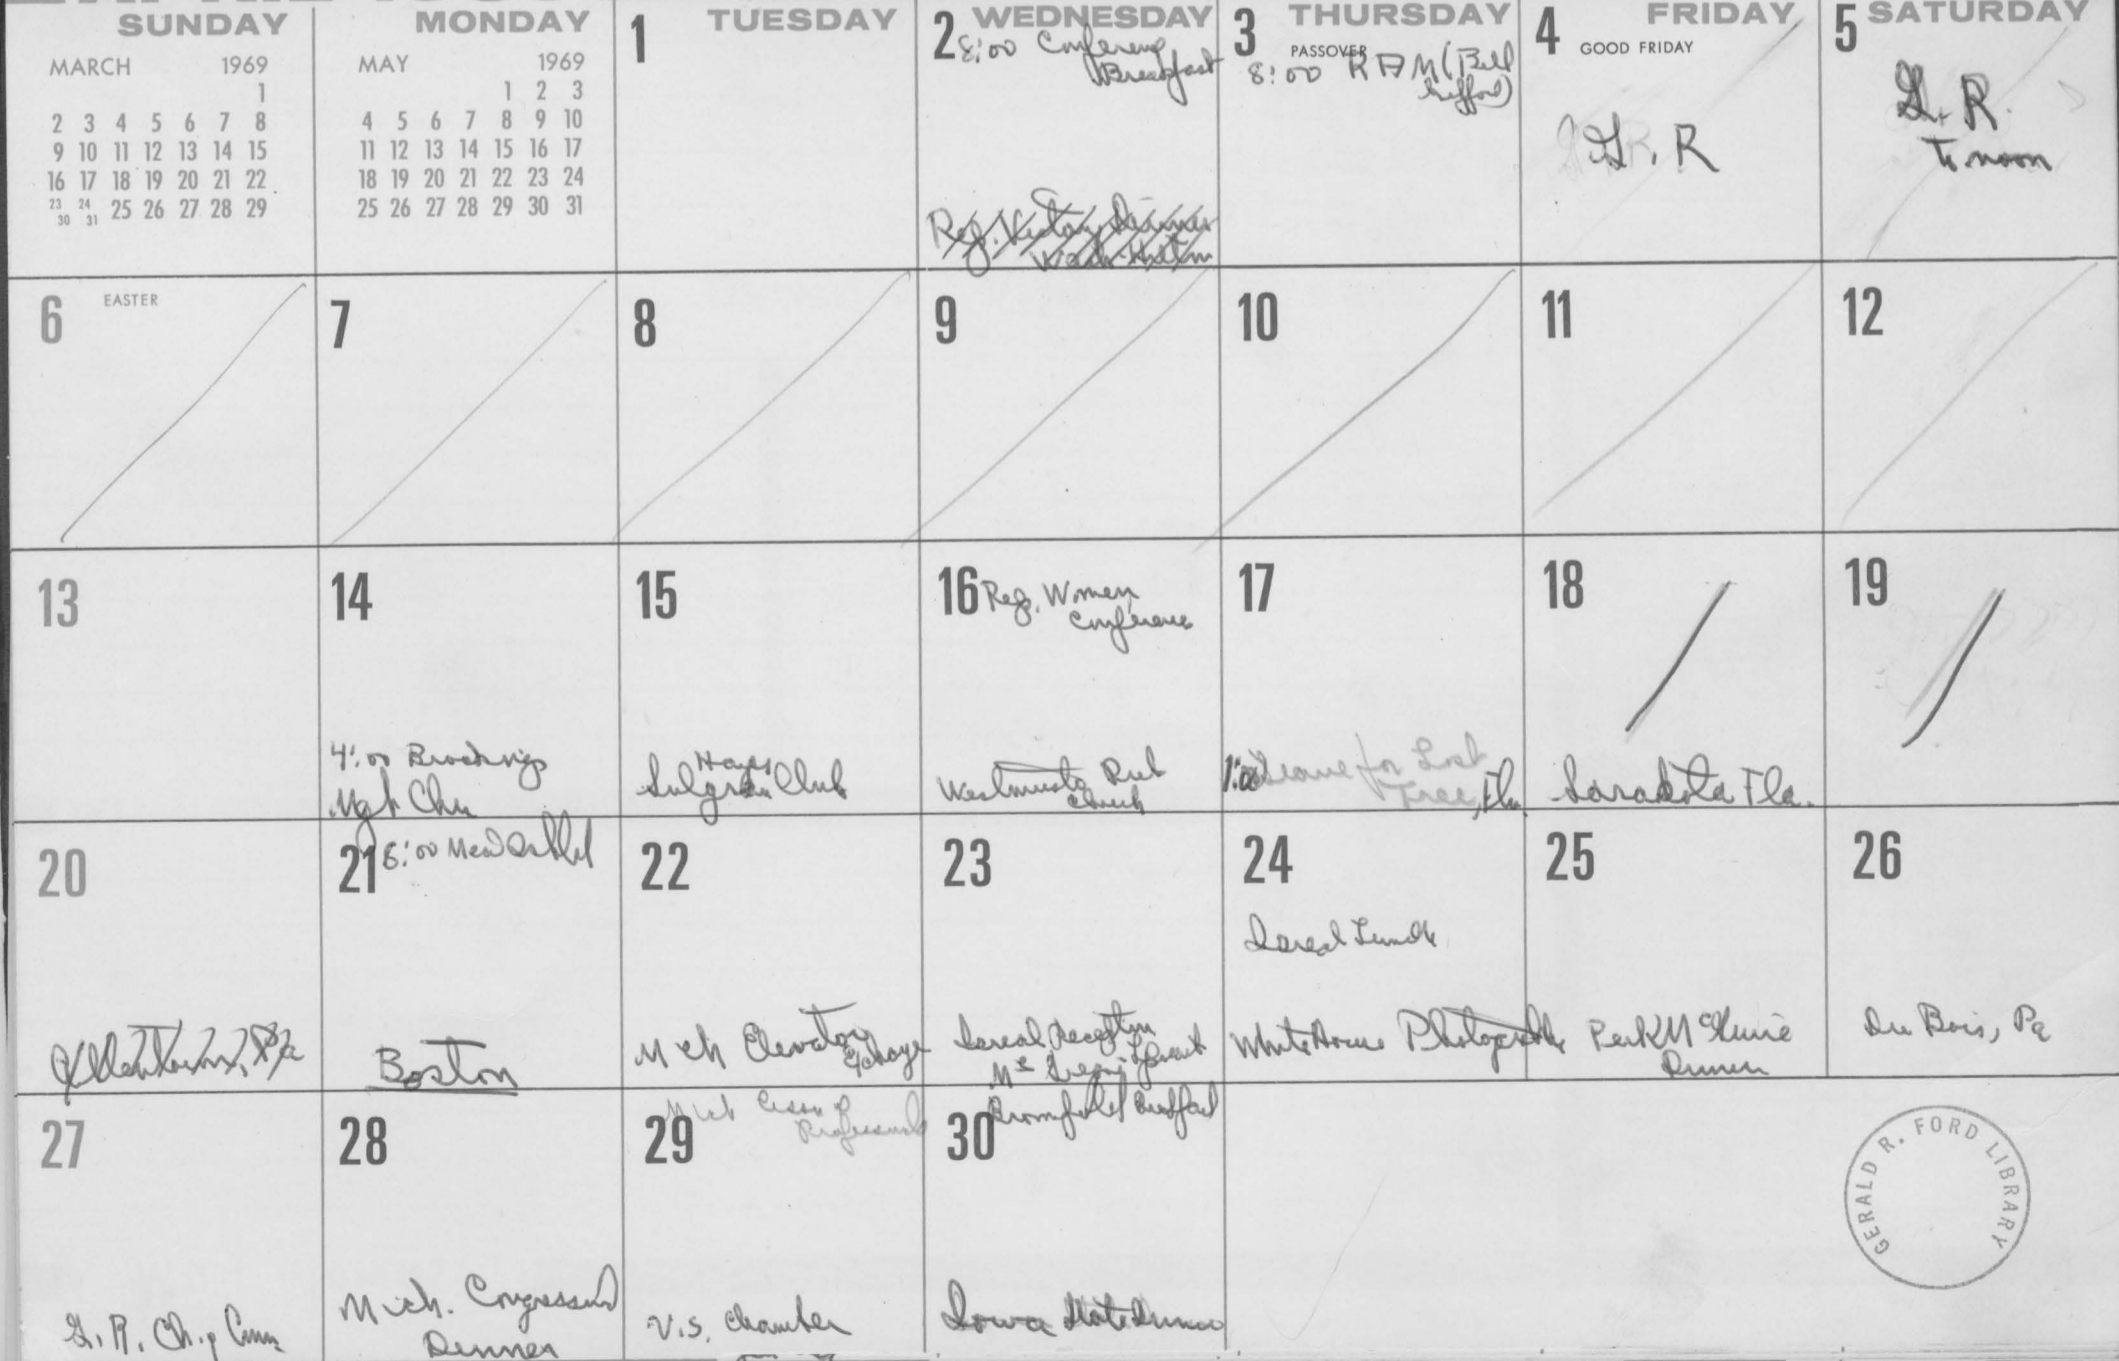 SUNDAY MONDAY TUESDAY WEDNESDAY THURSDAY FRIDAY SATURDAY
MARCH 1969
1
2 3 4 5 6 7 8
9 10 11 12 13 14 15
16 17 18 19 20 21 22
23 24 25 26 27 28 29
30 31
MAY 1969
1 2 3
4 5 6 7 8 9 10
11 12 13 14 15 16 17
18 19 20 21 22 23 24
25 26 27 28 29 30 31
1
2
8:00 Conference
Breakfast
Rep. Victory Dinner
Wash. Hilton
3
PASSOVER
8:00 RAM (Bill
4
GOOD FRIDAY
G. R
5
G. R.
To noon
6 EASTER
7
8
9
10
11
12
13
14
4:00 Brookings
15
Hayes
Sulgrave Club
16
Rep. Women
Conference
Westminster
Church
17
1:00 Leave for Lost
Tree, Fla
18
Sarasota Fla.
19
20
Allentown, Pa
21
8:00
Boston
22
Mich Elevator
Exchange
23
Israel Reception
24
Israel Lunch
White House Photographers
25
Dinner
26
Du Bois, Pa
27
G. R.
28
Mich. Congressional
Dinner
29
Mich Assn of
Professionals
U.S. Chamber
30
Bromfield Breakfast
Iowa State Dinner
GERALD R. FORD LIBRARY